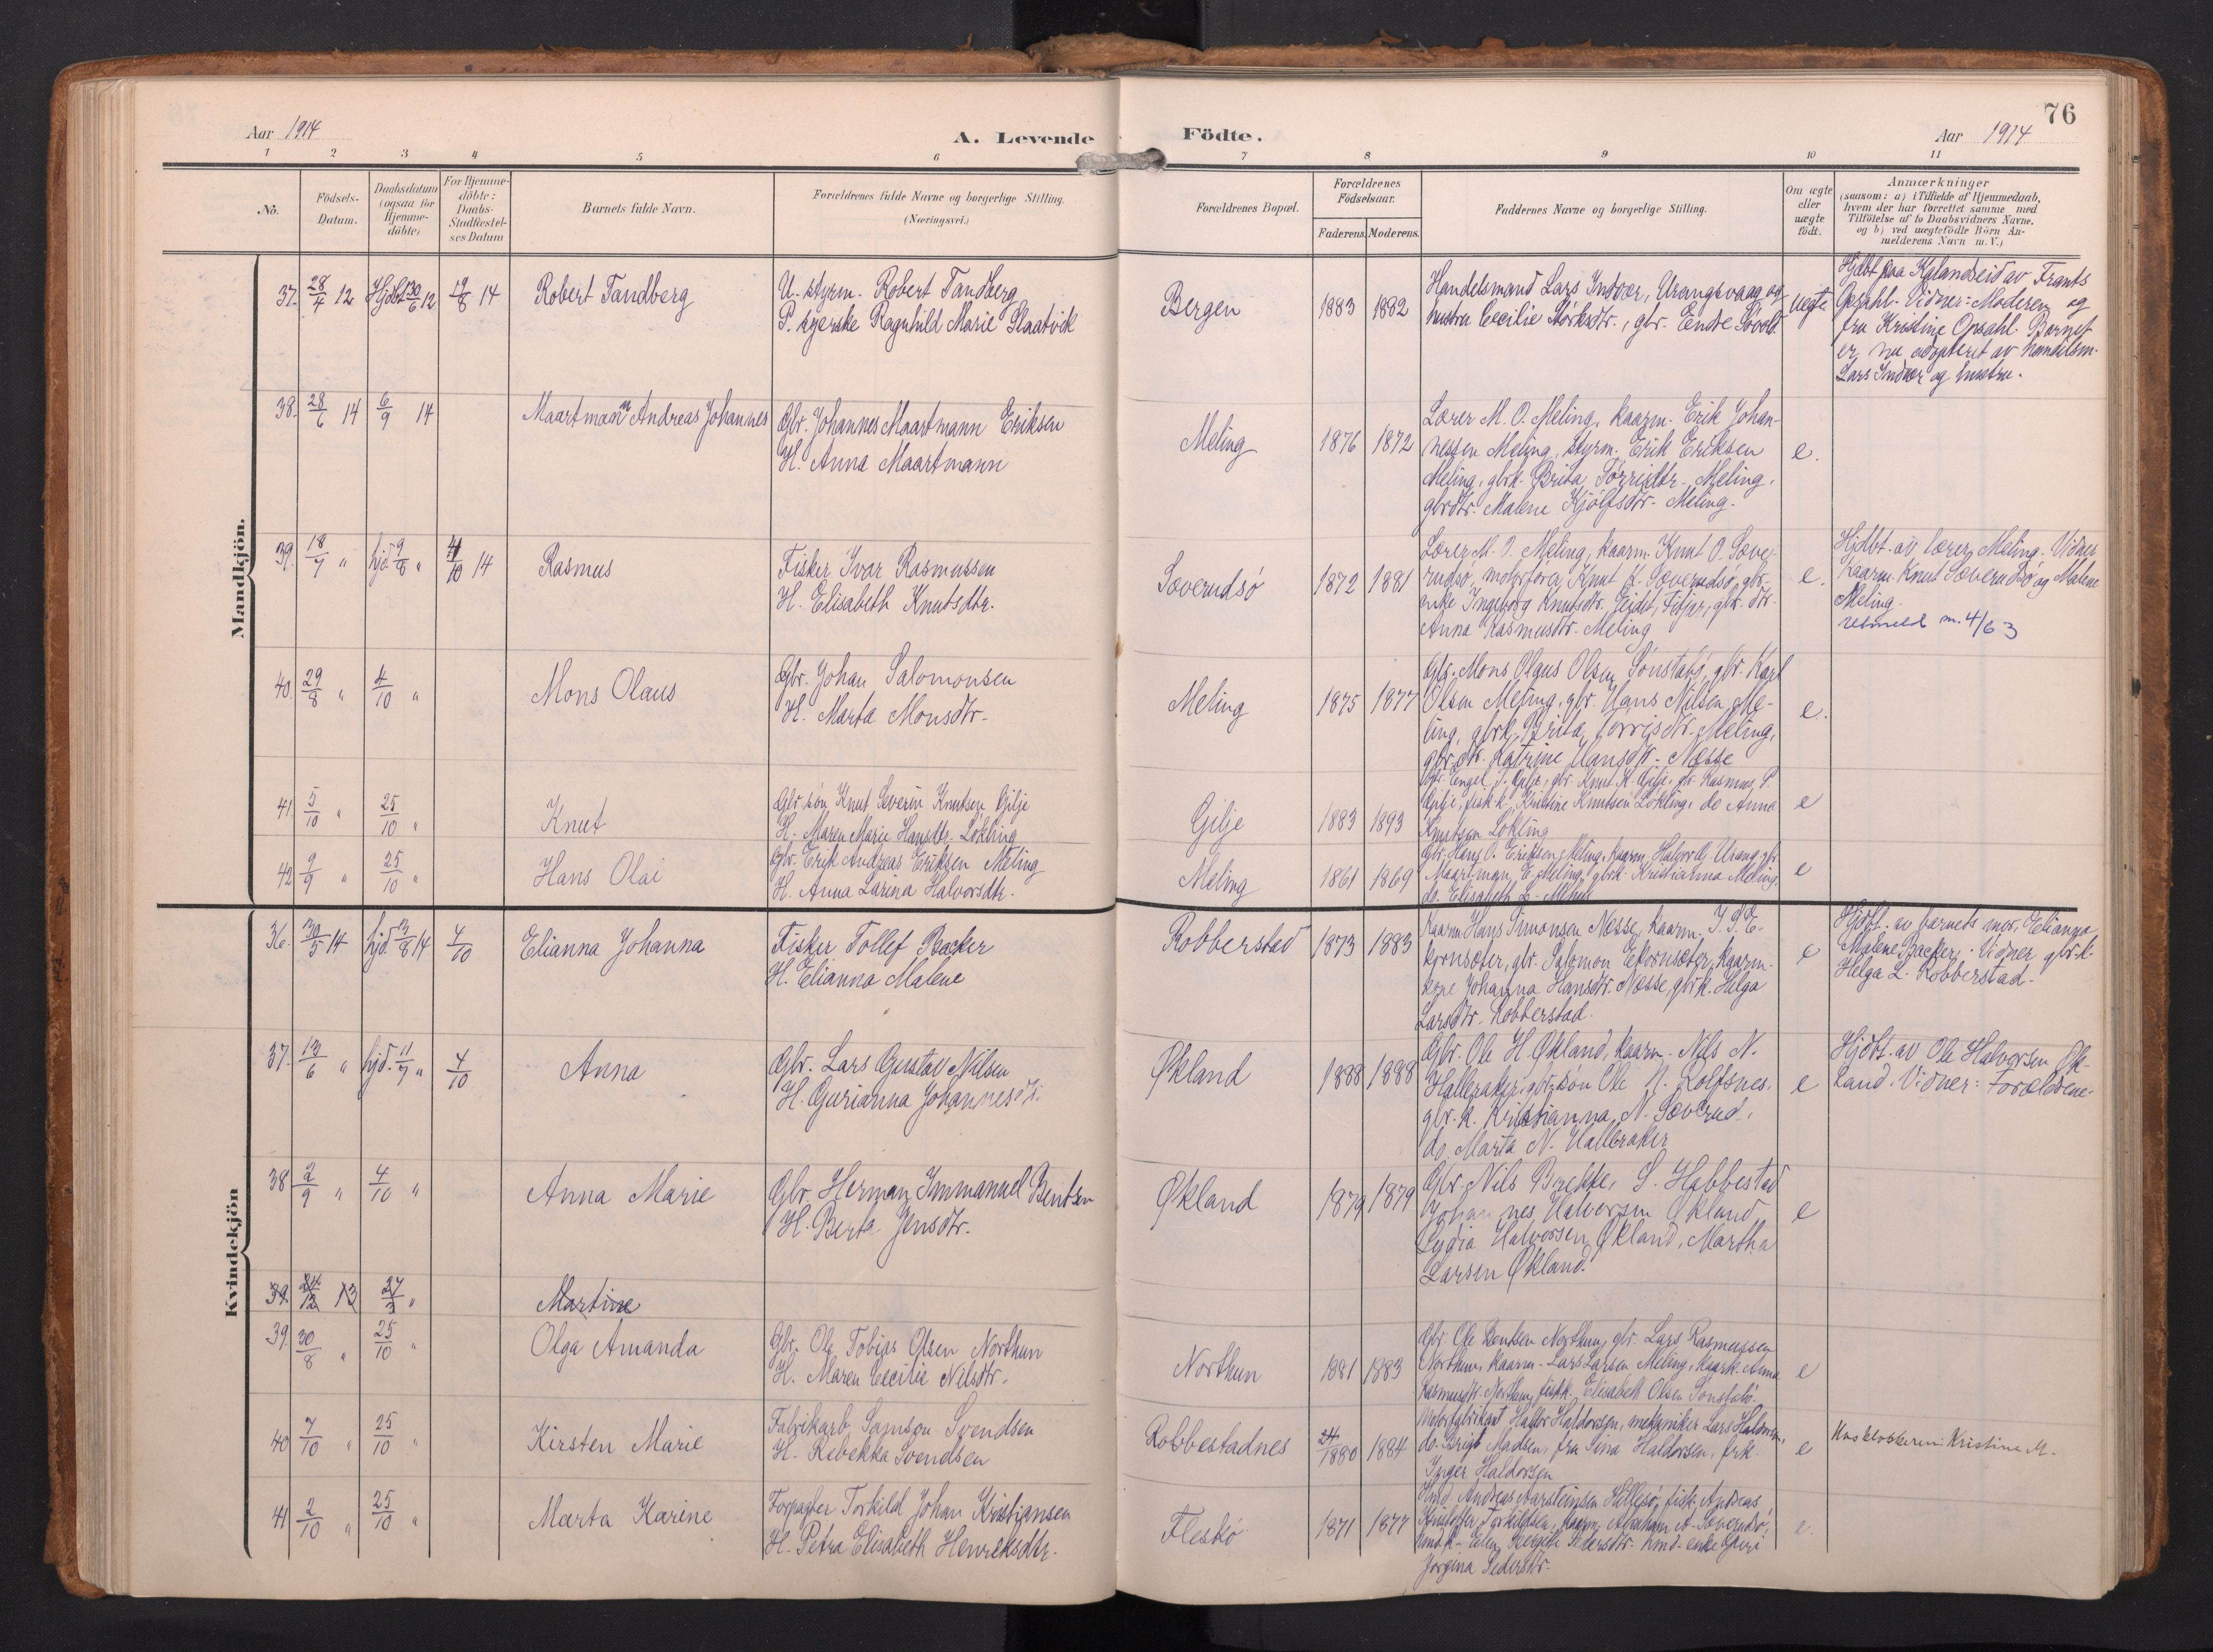 76
Aar 1914
A. Levende Födte.
Aar 1914
1 2 3 4 5 6 7 8 9 10 11
No.
Födsels-Datum.
Daabsdatum (ogsaa for Hjemme-döbte)
For Hjemme-döbte: Daabs-Stadfæstel-ses Datum
Barnets fulde Navn.
Forældrenes fulde Navne og borgerlige Stilling. (Næringsvei.)
Forældrenes Bopæl.
Forældrenes Födselsaar.
Faderens. Moderens.
Faddernes Navne og borgerlige Stilling.
Om ægte eller uægte födt.
Anmærkninger
(saasom: a) i Tilfælde af Hjemmedaab,
hvem der har forrettet samme med
Tilföielse af to Daabsvidners Navne.
og b) ved uægtefödte Börn An-
melderens Navn m. V.)
Mandkjön.
37. 28/4 12 Hjdbt 30/6 12 19/8 14
Robert Tandberg
U. styrm. Robert Tandberg
P. syerske Ragnhild Marie Slaatvik
Bergen
1883 1882
Handelsmand Lars Indvær, Urangsvaag og
hustru Cecilie Störksdtr., gbr. Endre
uegte
Hjdbt paa Kalandseid av Frants
Opsahl. Vidner: Moderen og
fru Kristine Opsahl. Barnet
er nu adopteret av handelsm.
Lars Indvær og hustru.
38. 28/6 14 6/9 14
Maartmann Andreas Johannes
Gbr. Johannes Maartmann Eriksen
H. Anna Maartmann
Meling
1876 1872
Lærer M. O. Meling, kaarm. Erik Johan-
nessen Meling, styrm. Erik Eriksen
Meling, gbrk. Brita Torrisdtr. Meling,
gbrdtr. Malene Kjölfsdtr. Meling.
e.
39. 18/7 " hjd. 9/8 " 4/10 14
Rasmus
Fisker Ivar Rasmussen
H. Elisabeth Knutsdtr.
Sæverudsö
1872 1881
Lærer M. O. Meling, kaarm. Knut O. Sæve-
rudsö, motorförer Knut K. Sæverudsö, gbr.
enke Ingeborg Knutsdtr. Eidet, Fitjar, gbr. dtr.
Anna Rasmusdtr. Meling
e.
Hjdbt. av lærer Meling. Vidner
kaarm. Knut Sæverudsö og Malene
Meling.
utmeldt m. 4/6 3
40. 29/8 " 4/10 "
Mons Olaus
Gbr. Johan Salomonsen
H. Marta Monsdtr.
Meling
1875 1877
Gbr. Mons Olaus Olsen Sönstabö, gbr. Karl
Olsen Meling, gbr. Hans Nilsen Me-
ling, gbrk. Brita Torrisdtr. Meling,
gbr. dtr. Katrine Hansdtr. Nesse
e.
41. 5/10 " 25/10 "
Knut
Gbr. sön Knut Severin Knutsen Gilje
H. Maren Marie Hansdtr. Lökling
Gilje
1883 1893
Gbr. Engel J. Gilje, gbr. Knut K. Gilje, gbr. Rasmus P.
Gilje, fisk. k. Kristine Knutsen Lökling, do Anna
Knutsen Lökling
e
42 9/9 " 25/10 "
Hans Olai
Gbr. Erik Andreas Eriksen Meling
H. Anna Larina Halvorsdtr.
Meling
1861 1869
Gbr. Hans O. Eriksen Meling, kaarm. Halvor Urang, gbr.
Maartman E. Meling, gbrk. Kristianna Meling,
do. Elisabeth
e
Kvindekjön
36. 30/5 14 hjd. 13/8 14 4/10
Elianna Johanna
Fisker Tollef Backer
H. Elianna Malene
Robberstad
1873 1883
Kaarm. Hans Simonsen Nesse, kaarm. J. S. E-
kornsæter, gbr. Salomon Ekornsæter, kaarm.
kone Johanna Hansdtr. Nesse, gbrk. Helga
Larsdtr. Robberstad.
e
Hjdbt. av barnets mor, Elianna
Malene Backer. Vidner gbr.k.
Helga L. Robberstad.
37. 13/6 " hjd. 11/7 " 4/10
Anna
Gbr. Lars Gustav Nilsen
H. Gurianna Johannesdtr.
Økland
1888 1888
Gbr. Ole H. Økland, kaarm. Nils N.
Halleraker, gbr. sön Ole N. Rolfsnes,
gbr. k. Kristianna N. Sæverud,
do. Marta N. Halleraker
e
Hjdbt. av Ole Halvorsen Øk-
land. Vidner: Forældrene.
38 2/9 " 4/10 "
Anna Marie
Gbr. Herman Immanuel Bentsen
H. Berta Jensdtr.
Økland
1879 1879
Gbr. Nils Brekke, S. Habbestad
Johannes Halvorsen Økland
Lydia Halvorsen Økland, Martha
Larsen Økland.
e
39. 24/12 13 27/3 "
Martine
39. 30/8 " 25/10 "
Olga Amanda
Gbr. Ole Tobias Olsen Northun
H. Maren Cecilie Nilsdtr.
Northun
1881 1883
Gbr. Ole Bentsen Northun, gbr. Lars Rasmussen
Northun, kaarm. Lars Larsen Meling, kaark. Anna
Rasmusdtr. Northun, fisk.k. Elisabeth Olsen Sönstabö.
e
40 7/10 " 25/10 "
Kirsten Marie
Fabrikarb. Samson Svendsen
H. Rebekka Svendsen
Robbestadnes
24/1880 1884
Motorfabrikant Haldor Haldorsen, mekaniker Lars Haldorsen,
do. Brigt Madsen, fru Sina Haldorsen, frk.
Inger Haldorsen
e
Hos klokkeren: Kristine M.
41 2/10 " 25/10 "
Marta Karine
Forpagter Torkild Johan Kristiansen
H. Petra Elisabeth Henreksdtr.
Fleskö
1871 1877
Hmd. Andreas Aarsteinsen Hillesö, fisk. Andreas
Kristoffer Torkildsen, kaarm. Abraham A. Sæverudsö,
hmd.k. Elen Pedersdtr. hmd. enke Guri
Jorgina Pedersdtr.
e.